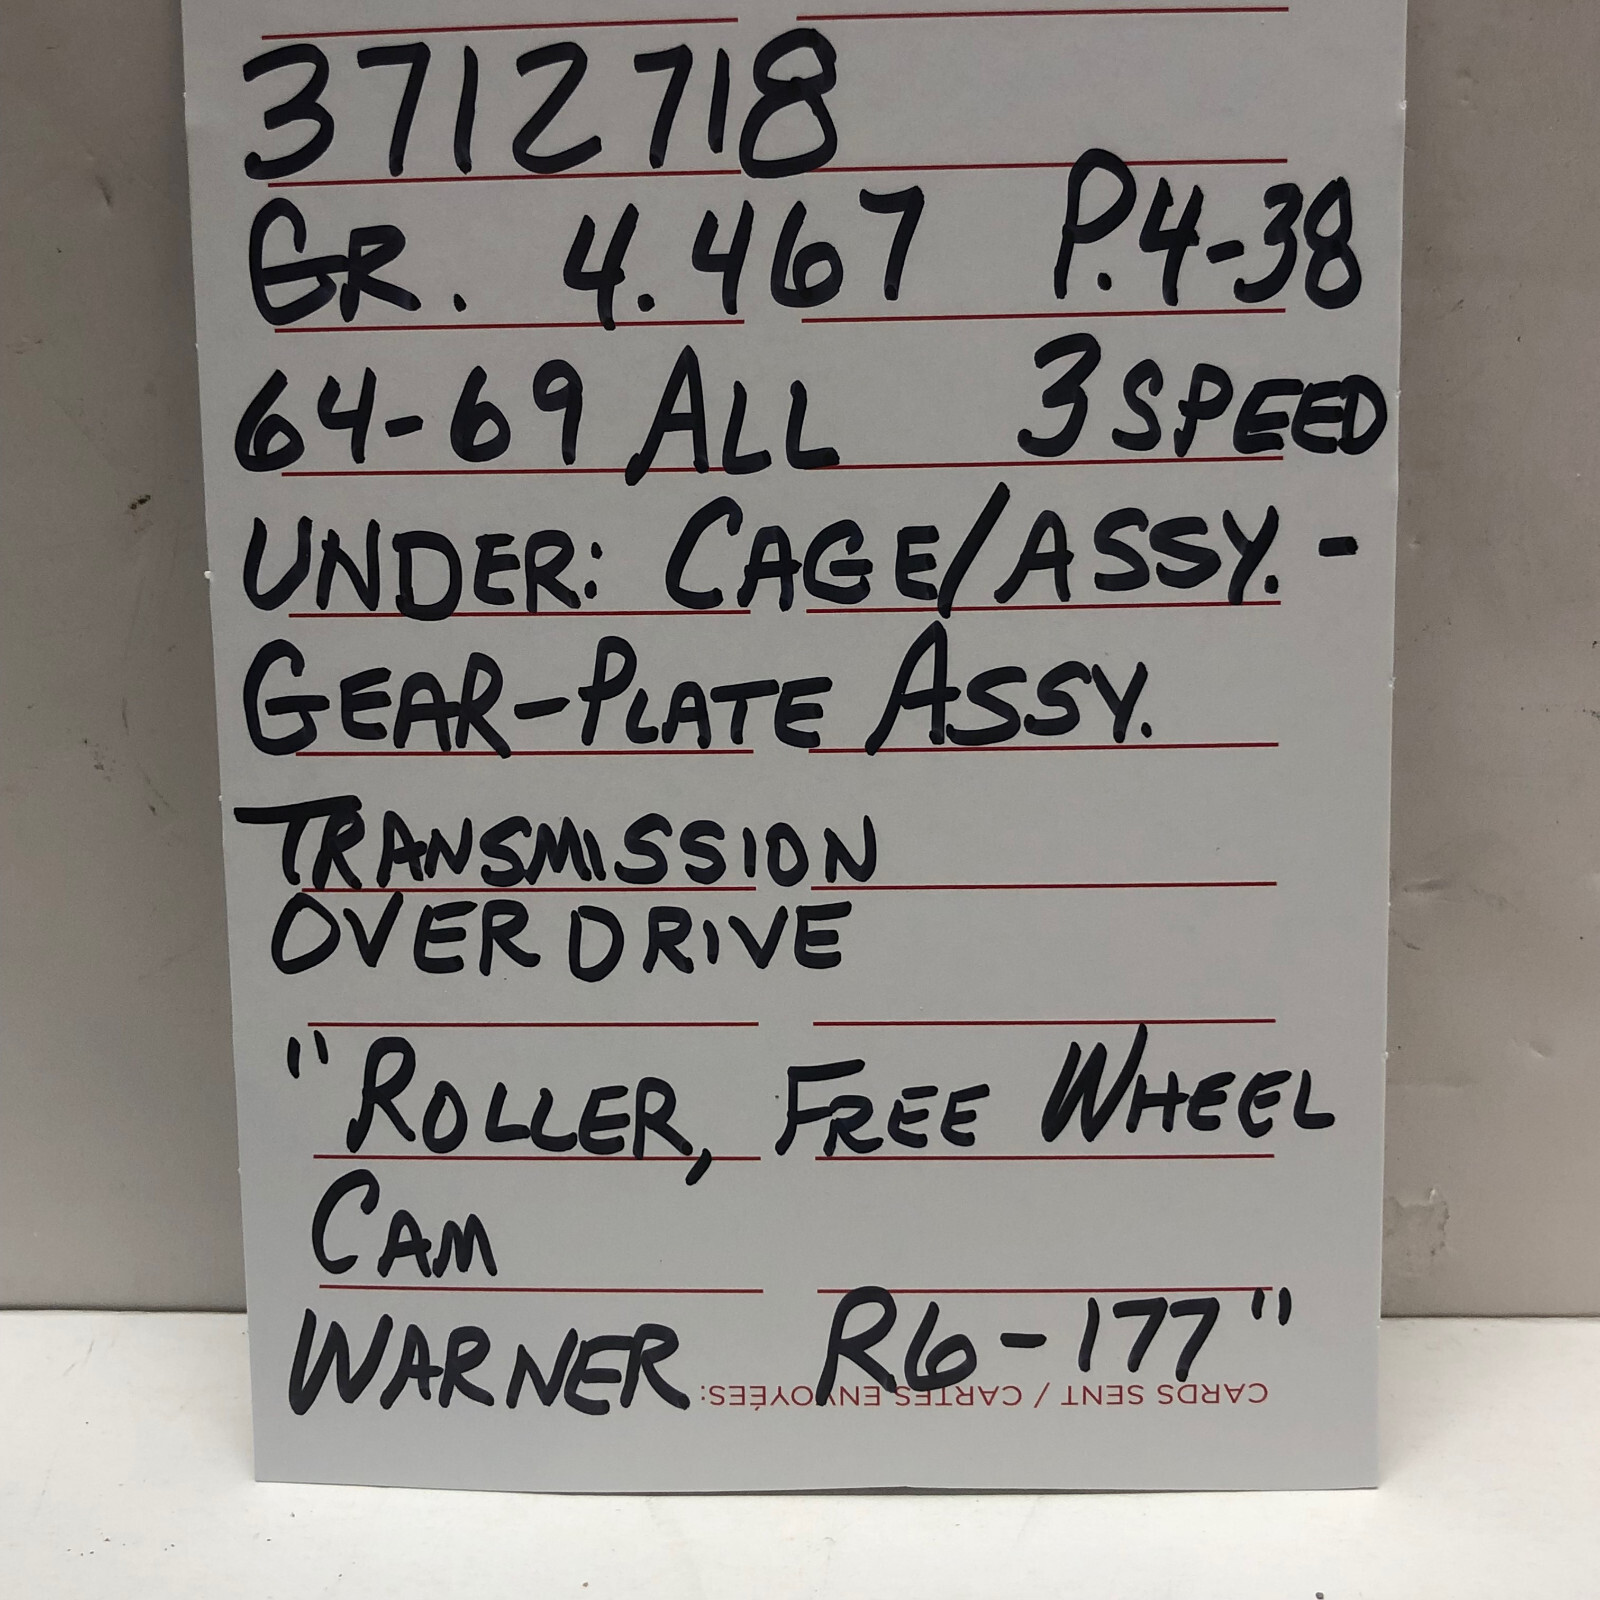 3712718
GR. 4.467 P.4-38
64-69 ALL 3 SPEED
UNDER: CAGE/ASSY. -
GEAR-PLATE ASSY.
TRANSMISSION
OVERDRIVE
"ROLLER, FREE WHEEL
CAM
WARNER R6-177"
CARDS SENT / CARTES ENVOYÉES: